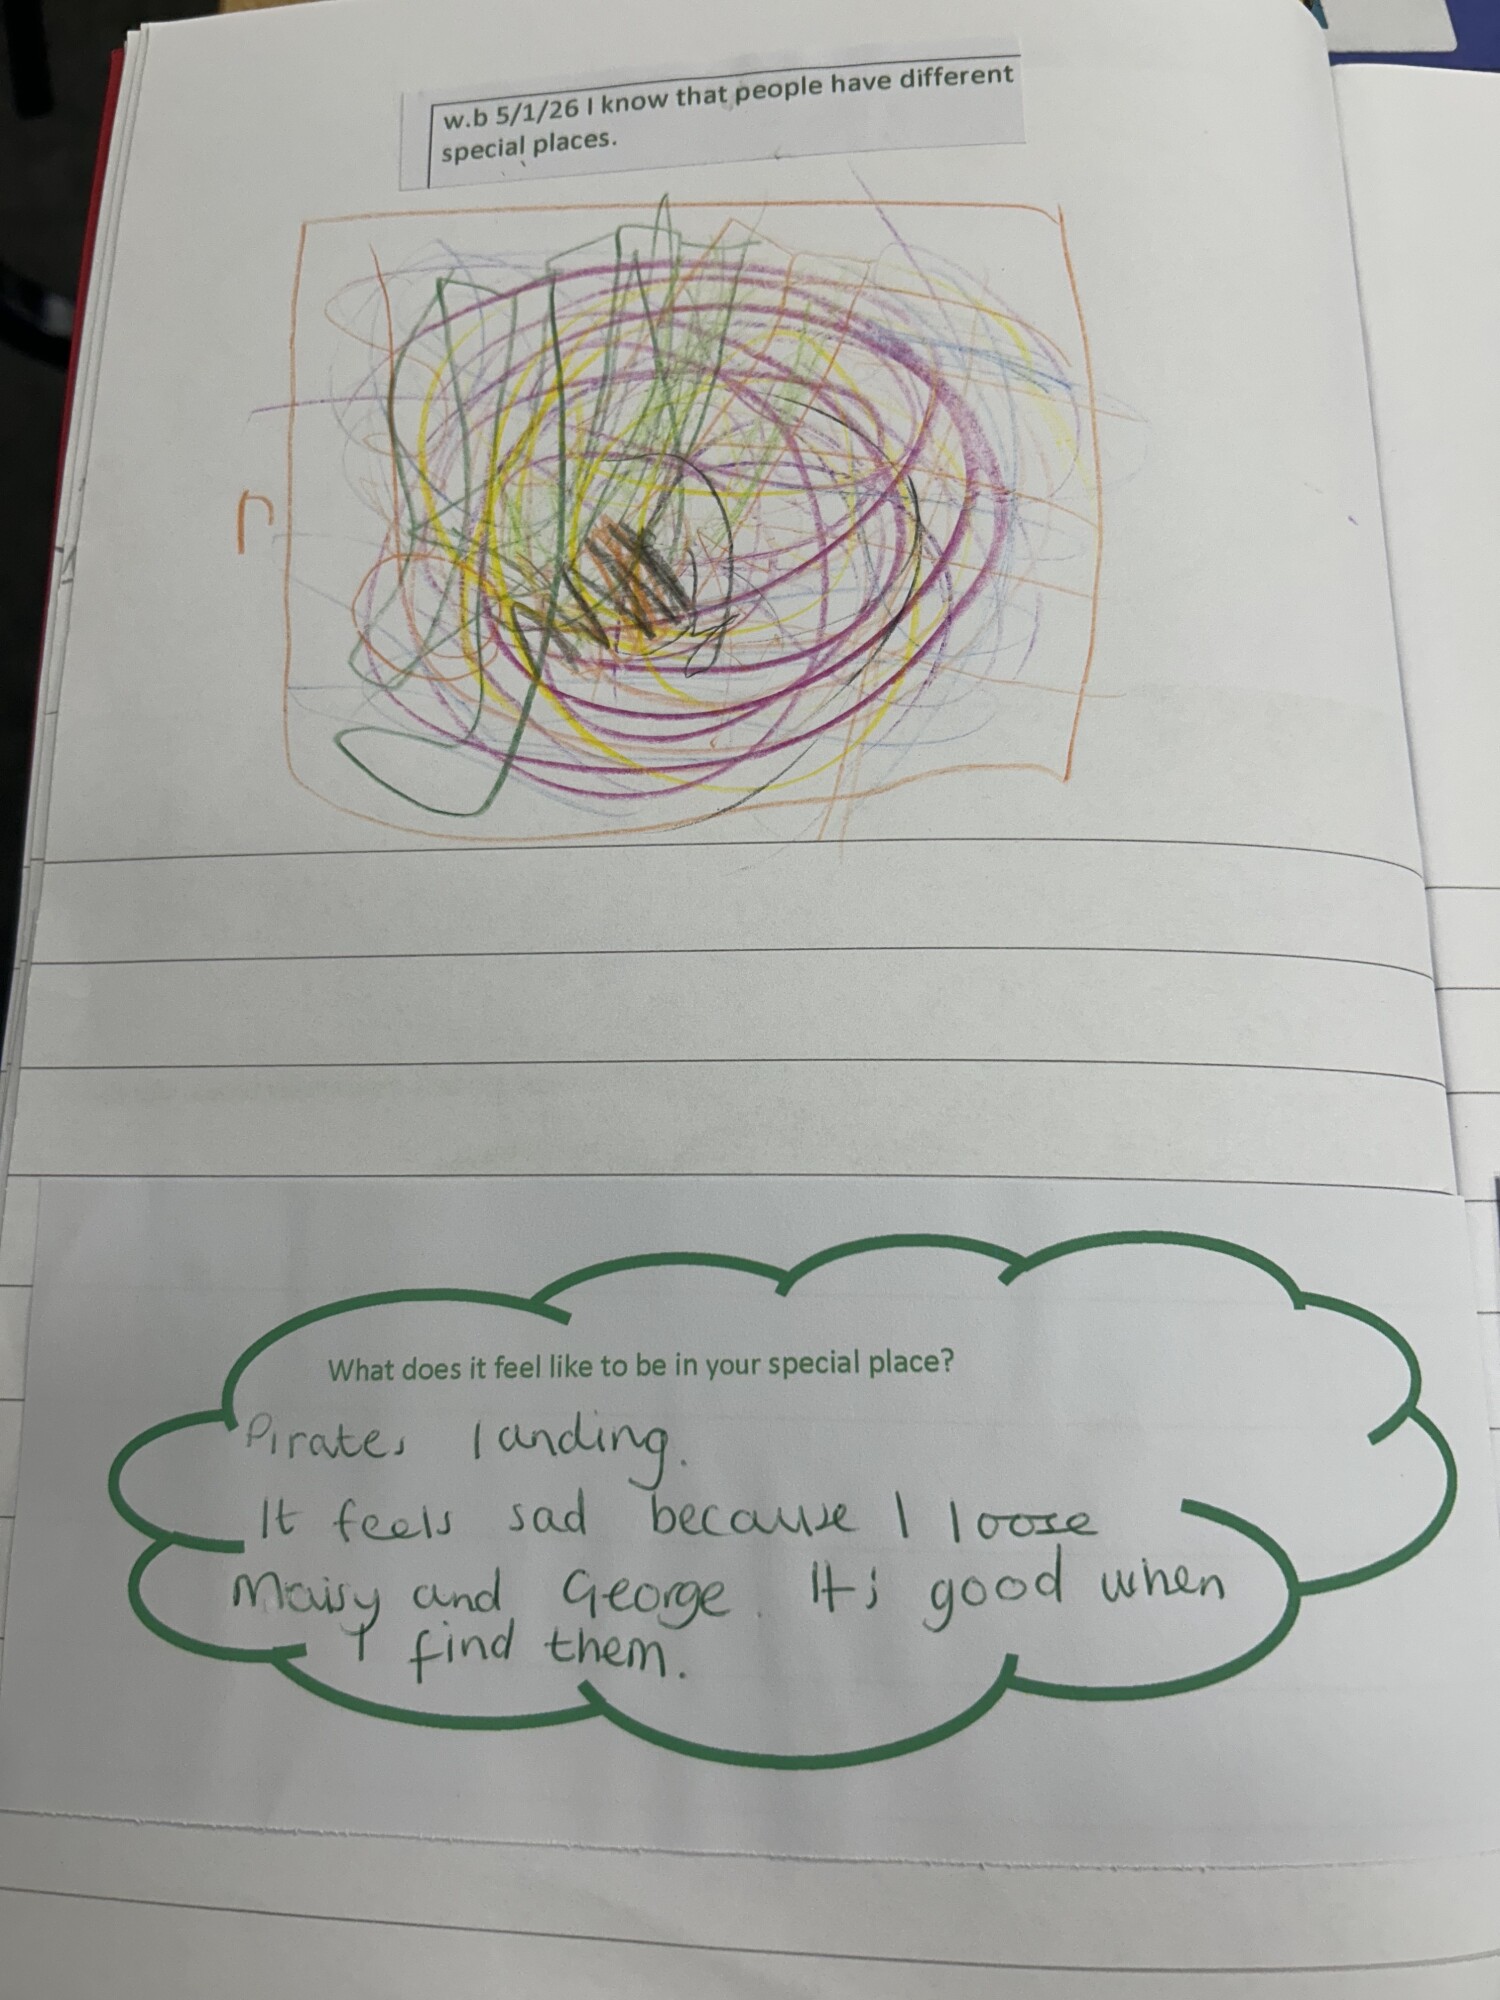 w.b 5/1/26 I know that people have different
special places.
r
What does it feel like to be in your special place?
Pirates landing.
It feels sad because I loose
Maisy and George. It's good when
I find them.